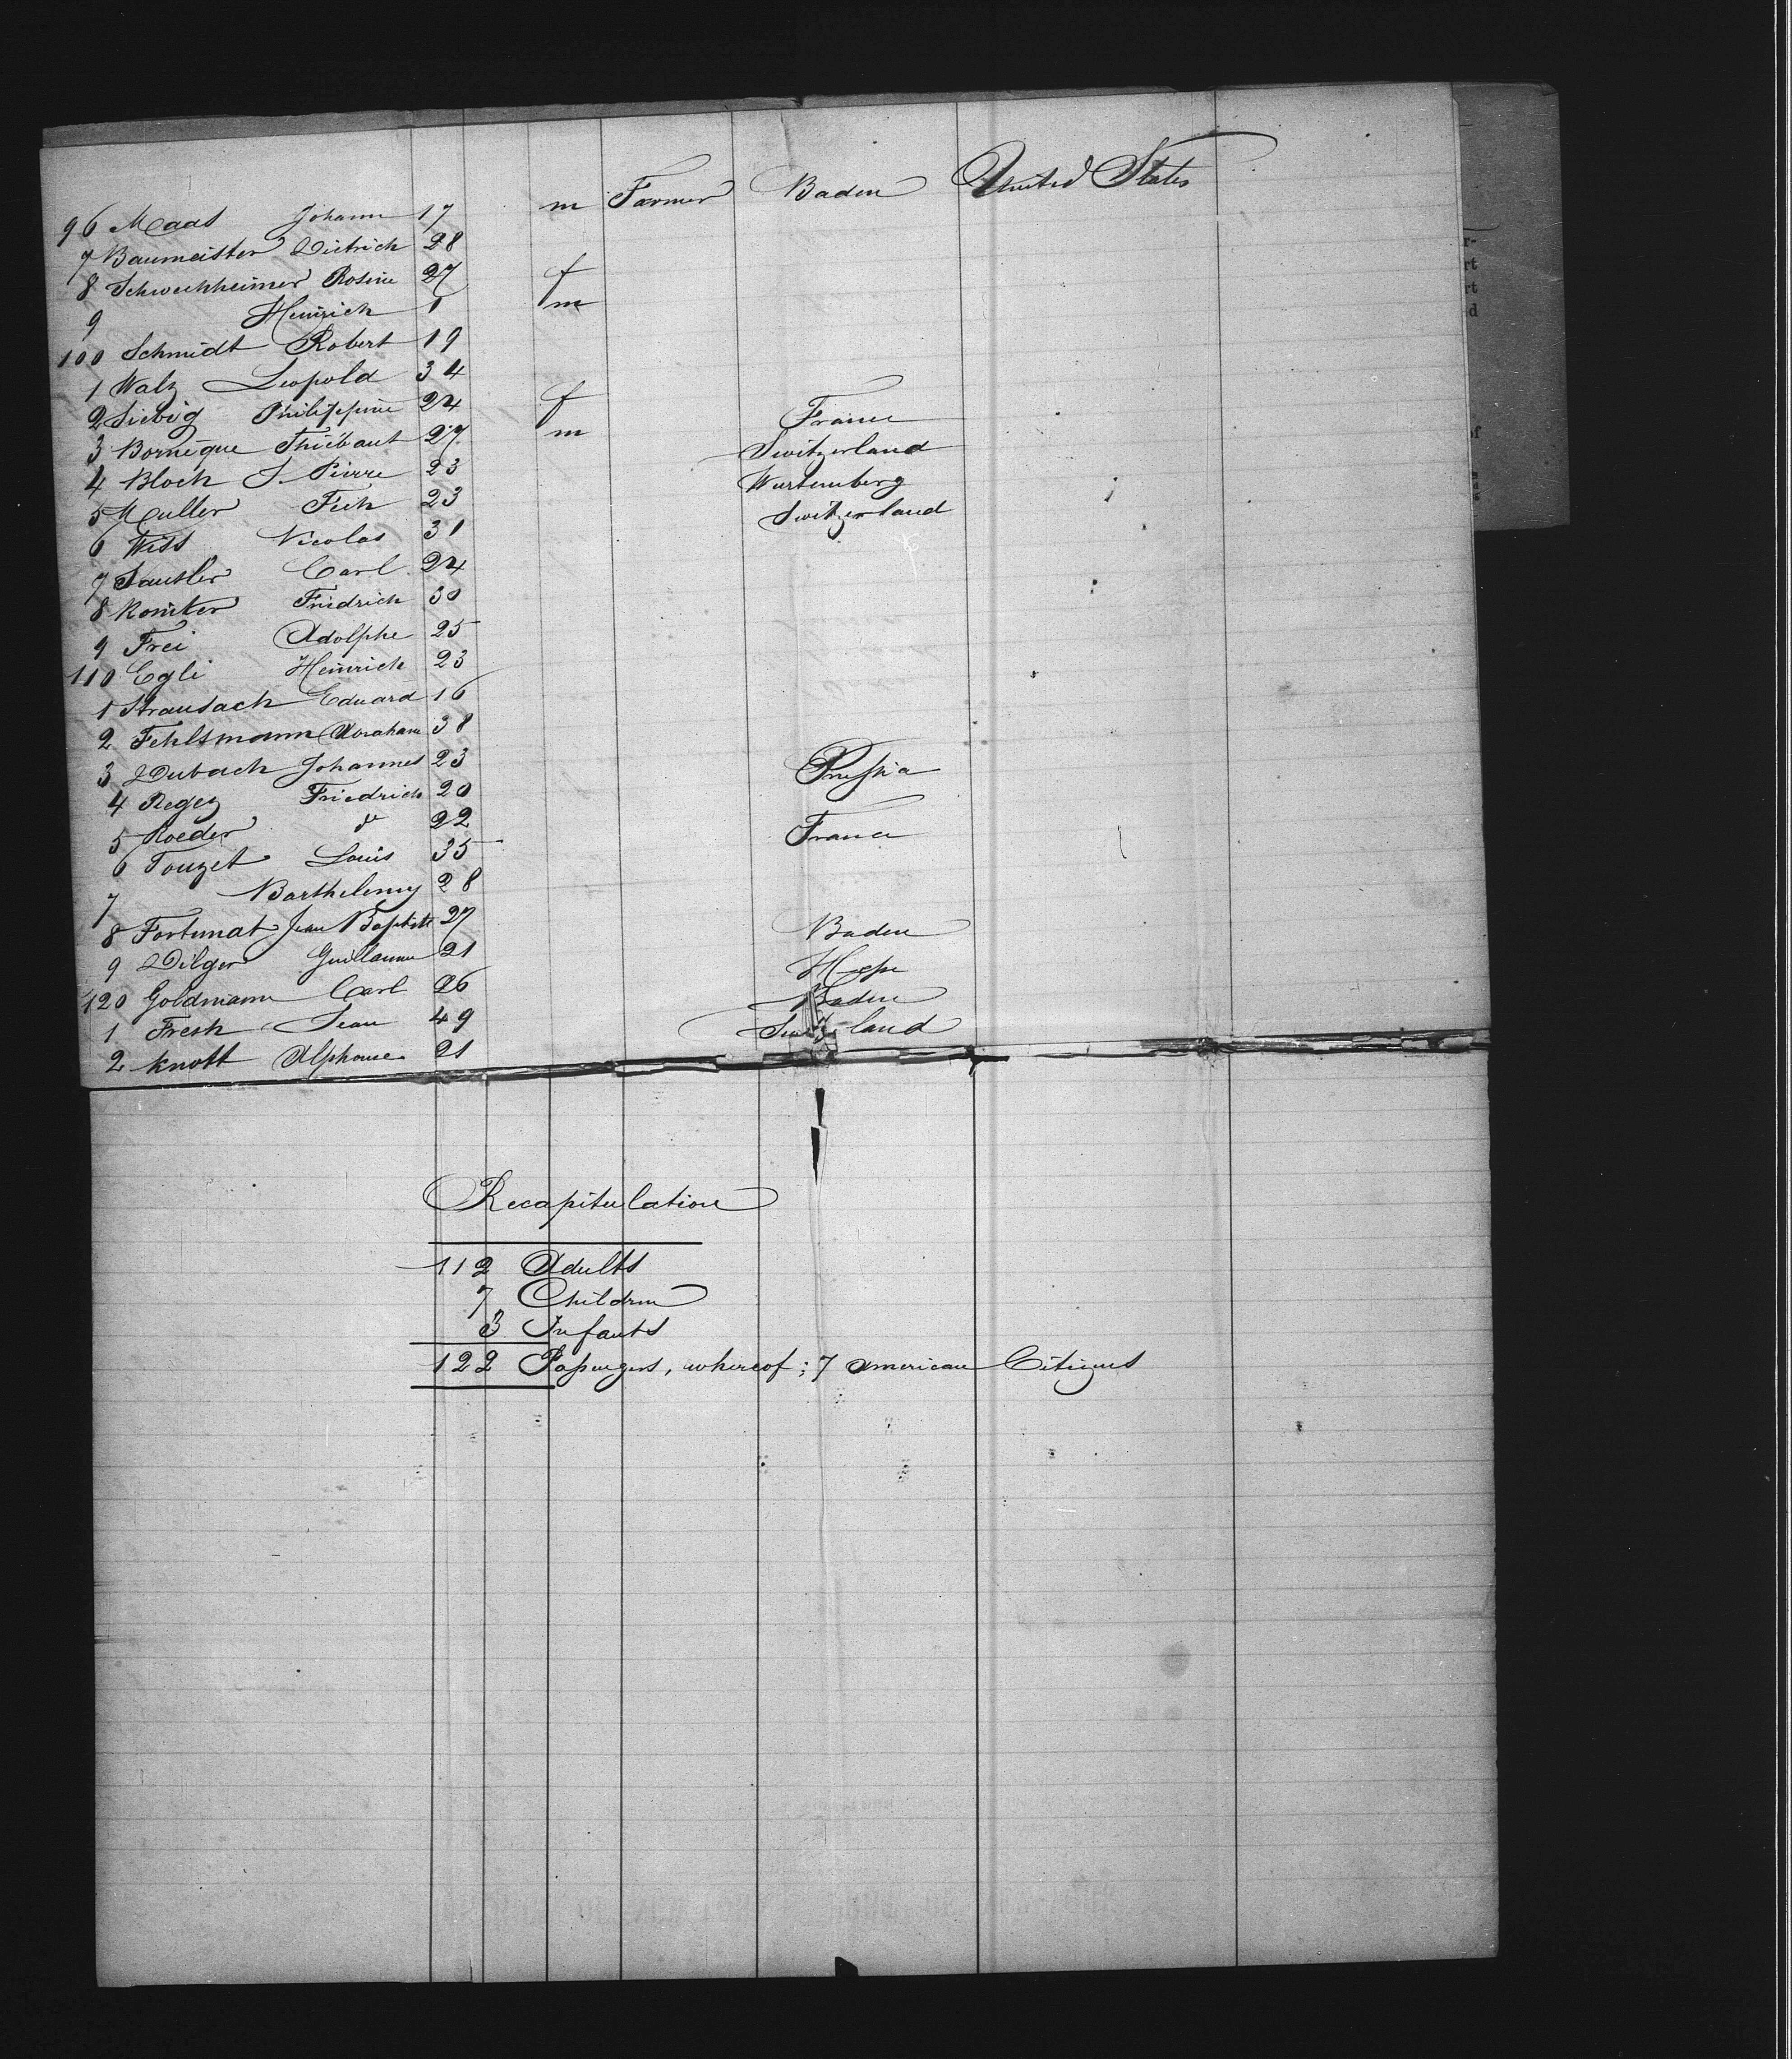 96 Maas Johann 17 m Farmer Baden United States
7 Baumeister Dietrich 28
8 Schweckheimer Rosine 27 f
9 Heinrich 1 m
100 Schmidt Robert 19
1 Walz Leopold 34
2 Siebig Philippine 24 f
3 Bornèque Thiébaut 27 m France
4 Bloch J. Pierre 23 Switzerland
5 Muller Feih 23 Wurtemberg
6 Wiss Nicolas 31 Switzerland
7 Sautler Carl 24
8 Koniker Friedrich 30
9 Frei Adolphe 25
110 Egli Heinrich 23
1 Strausach Eduard 16
2 Fehlsmann Abraham 38
3 Dubach Johannes 23
4 Regez Friedrich 20
5 Roeder do 22 Prussia
6 Touzet Louis 35 France
7 Barthelemy 28
8 Fortunat Jean Baptiste 27
9 Dilger Guillaume 21 Baden
120 Goldmann Carl 26 Hesse
1 Fresh Jean 49 Baden
2 Knott Alphonse 21 Switzerland
Recapitulation
112 Adults
7 Children
3 Infants
122 Passengers, whereof; 7 american Citizens